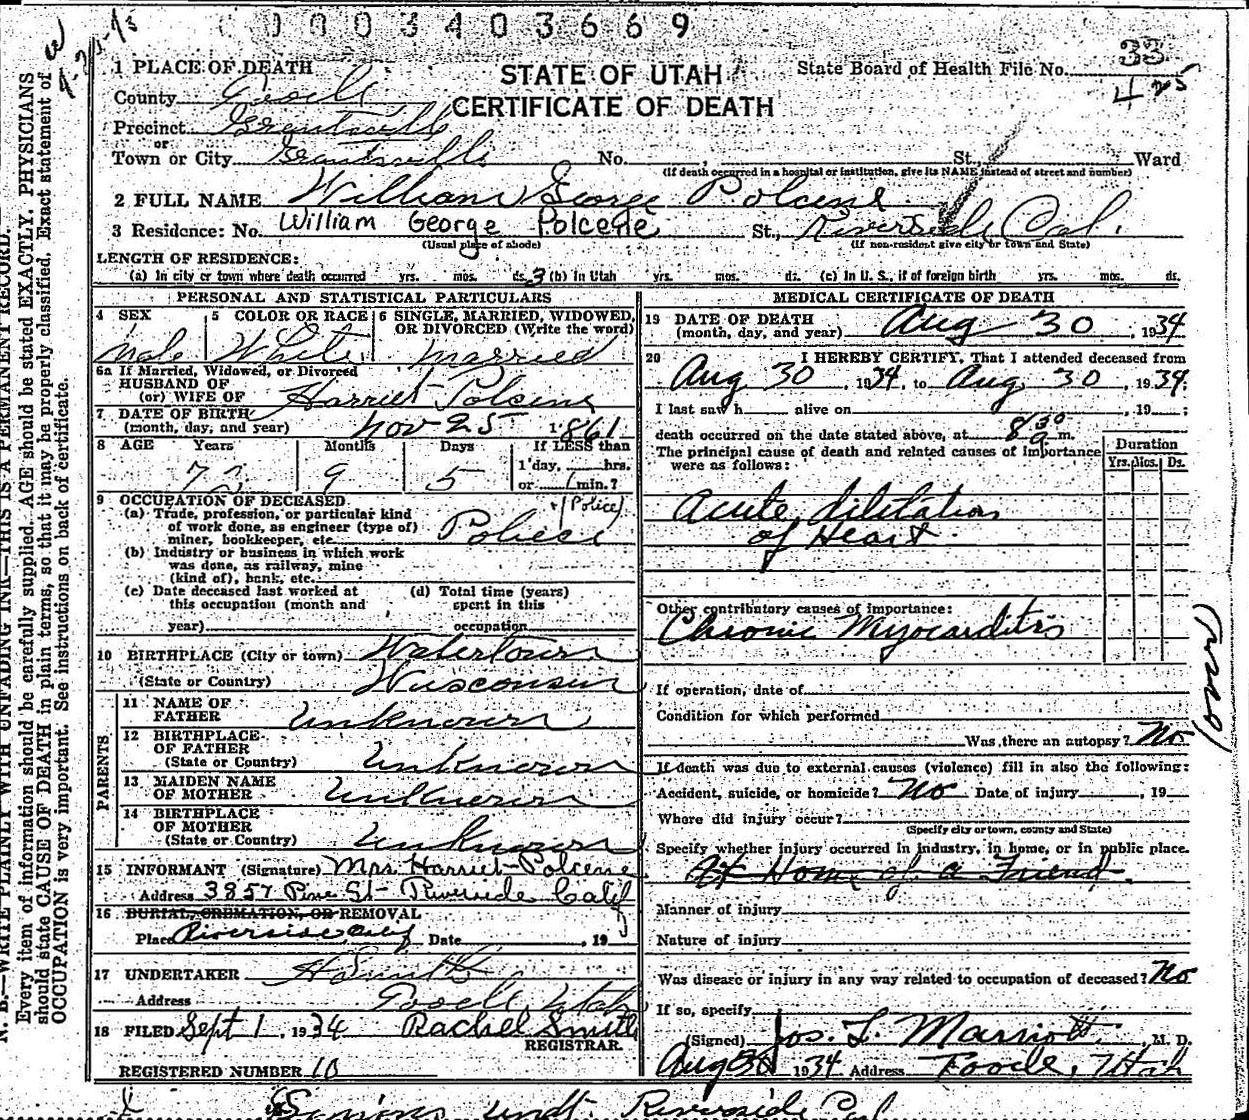 000340363669
1 PLACE OF DEATH
STATE OF UTAH
CERTIFICATE OF DEATH
State Board of Health File No. 33
425
County Tooele
Precinct Grantsville
or
Town or City Grantsville No. , St., Ward
(If death occurred in a hospital or institution, give its NAME instead of street and number)
2 FULL NAME William George Polcene
3 Residence: No. William George Polcene St., Riverside Cal.
(Usual place of abode) (If non-resident give city or town and State)
LENGTH OF RESIDENCE:
(a) In city or town where death occurred yrs. mos. ds. 3 (b) in Utah yrs. mos. ds. (c) in U. S., if of foreign birth yrs. mos. ds.
PERSONAL AND STATISTICAL PARTICULARS
4 SEX Male
5 COLOR OR RACE White
6 SINGLE, MARRIED, WIDOWED, OR DIVORCED (Write the word) married
6a If Married, Widowed, or Divorced
HUSBAND OF
(or) WIFE OF Harriet Polcene
7 DATE OF BIRTH
(month, day, and year) Nov 25 1861
8 AGE Years Months Days If LESS than
72 9 5 1 day, hrs.
or min.?
9 OCCUPATION OF DECEASED
(a) Trade, profession, or particular kind
of work done, as engineer (type of)
miner, bookkeeper, etc. Police (Police)
(b) Industry or business in which work
was done, as railway, mine
(kind of), bank, etc.
(c) Date deceased last worked at
this occupation (month and
year)
(d) Total time (years)
spent in this
occupation
10 BIRTHPLACE (City or town) Watertown
(State or Country) Wisconsin
PARENTS
11 NAME OF
FATHER Unknown
12 BIRTHPLACE
OF FATHER
(State or Country) Unknown
13 MAIDEN NAME
OF MOTHER Unknown
14 BIRTHPLACE
OF MOTHER
(State or Country) Unknown
15 INFORMANT (Signature) Mrs Harriet Polcene
Address 3857 Pine St Riverside Calif
16 BURIAL, CREMATION, OR REMOVAL
Place Riverside, Calif Date , 19
17 UNDERTAKER
Address Tooele, Utah
18 FILED Sept 1, 1934 Rachel Smith
REGISTRAR.
REGISTERED NUMBER 10
MEDICAL CERTIFICATE OF DEATH
19 DATE OF DEATH
(month, day, and year) Aug 30, 1934
20 I HEREBY CERTIFY, That I attended deceased from
Aug 30, 1934, to Aug 30, 1934;
I last saw h alive on , 19 ;
death occurred on the date stated above, at 8 30 a m.
The principal cause of death and related causes of importance
were as follows:
Duration
Yrs. Mos. Ds.
Acute dilitation
of Heart
Other contributory causes of importance:
Chronic Myocarditis
If operation, date of
Condition for which performed
Was there an autopsy? No
If death was due to external causes (violence) fill in also the following:
Accident, suicide, or homicide? No Date of injury , 19
Where did injury occur?
(Specify city or town, county and State)
Specify whether injury occurred in industry, in home, or in public place.
At Home of a Friend
Manner of injury
Nature of injury
Was disease or injury in any way related to occupation of deceased? No
If so, specify
(Signed) Jos. L. Marriott, M. D.
Aug 1934 Address Tooele, Utah
undt. Riverside Cal
(over)
N. B.—WRITE PLAINLY WITH UNFADING INK—THIS IS A PERMANENT RECORD.
Every item of information should be carefully supplied. AGE should be stated EXACTLY. PHYSICIANS
should state CAUSE OF DEATH in plain terms, so that it may be properly classified. Exact statement of
OCCUPATION is very important. See instructions on back of certificate.